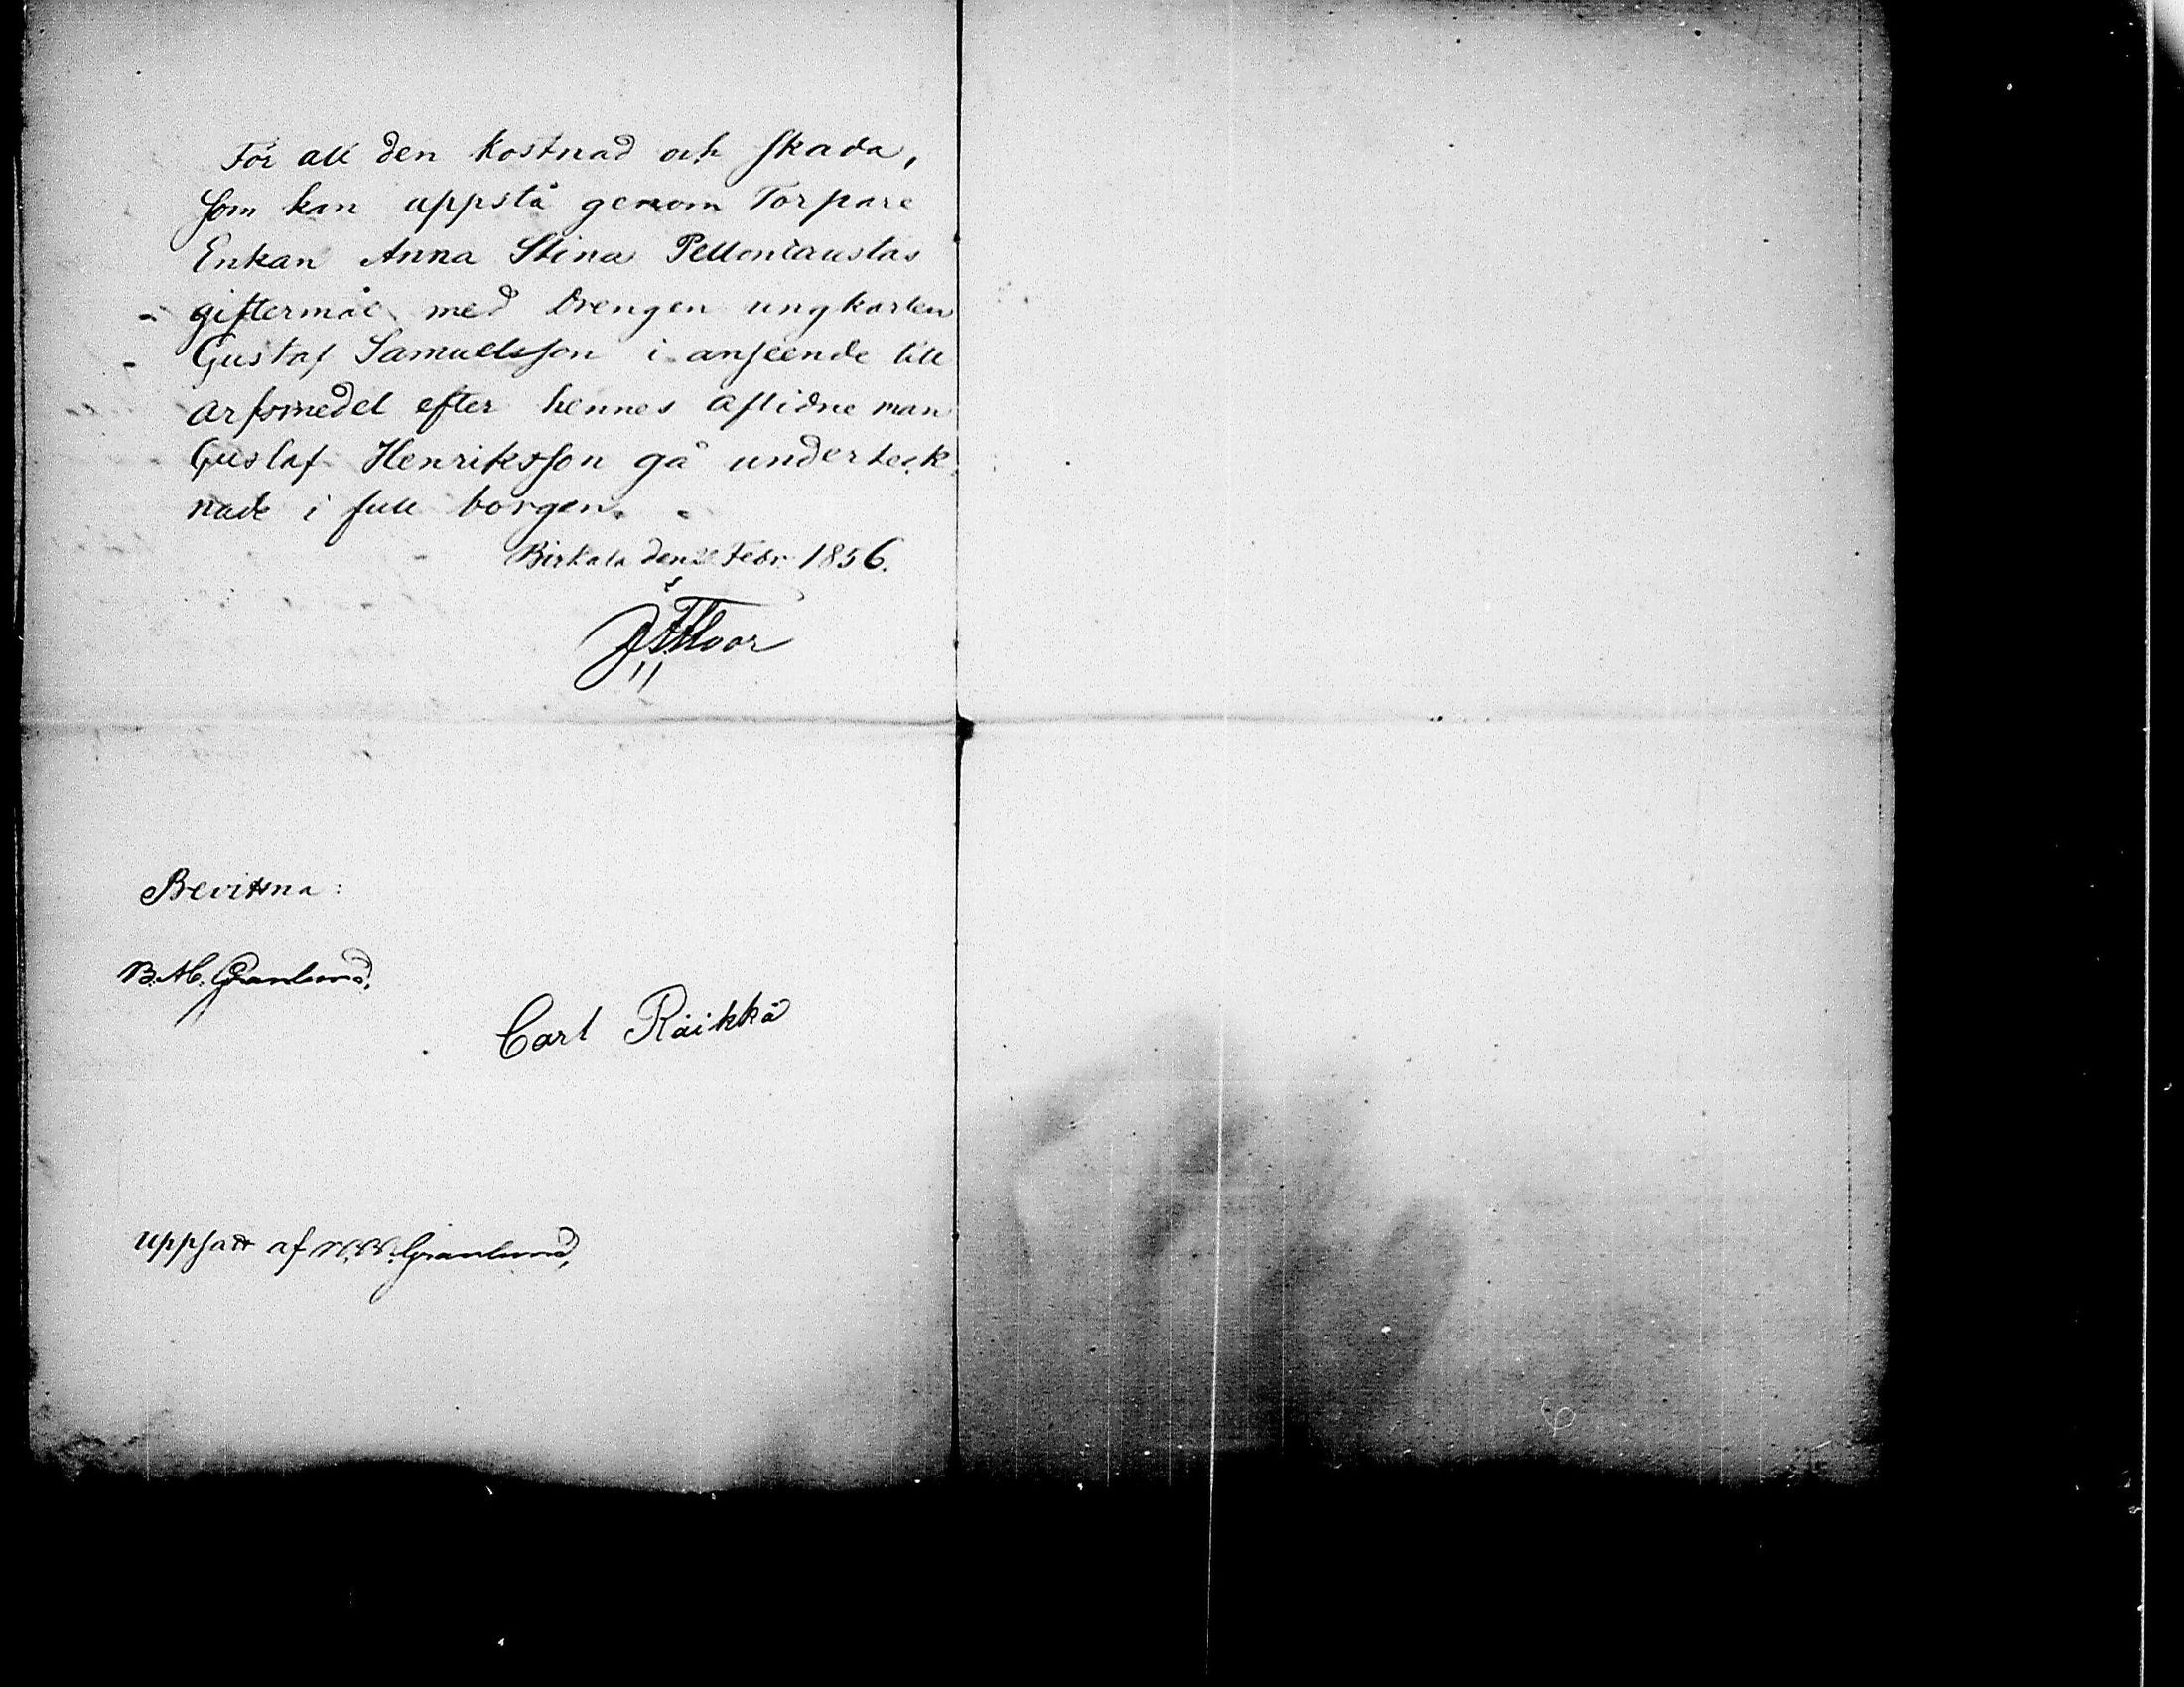 För all den kostnad och skada,
som kan uppstå genom Torpare
Enkan Anna Stina Pellontaustas
giftermål med Drengen ungkarlen
Gustaf Samuelsson i anseende till
arfsmedel efter hennes aflidne man
Gustaf Henriksson gå underteck
nade i full borgen.
Birkala den Febr. 1856.
Bevittna:
Granlund,
Carl Räikkä
uppsatt af Granlund,